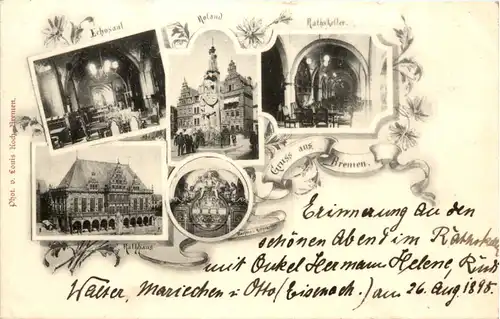 Echosaal
Roland
Rathskeller.
Phot. v. Louis Koch, Bremen.
Gruss aus Bremen.
Rathhaus
Erinnerung an den
schönen Abend im
mit Onkel Hermann Helene,
Walter, Mariechen u. Otto (Eisenach.) am 26. Aug. 1895.